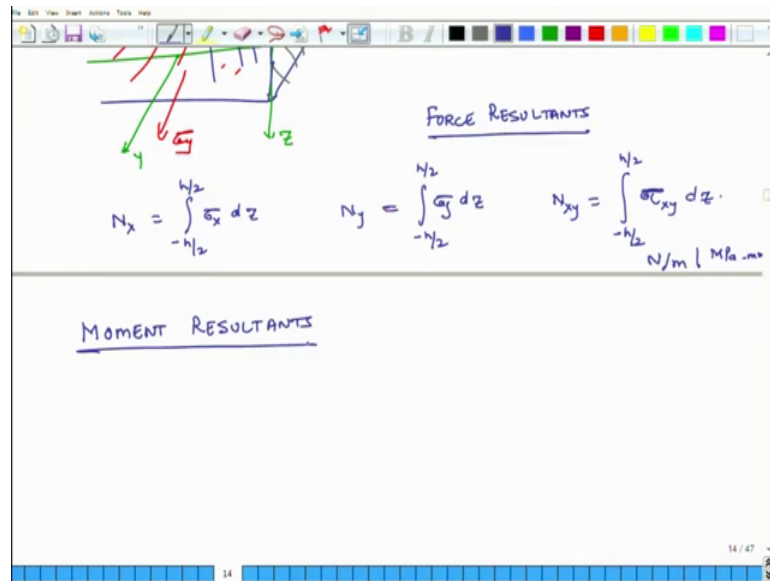 File Edit View Insert Actions Tools Help
B I
y σy z
FORCE RESULTANTS
N_x = ∫_{-h/2}^{h/2} σ_x dz N_y = ∫_{-h/2}^{h/2} σ_y dz N_xy = ∫_{-h/2}^{h/2} τ_xy dz.
N/m | MPa-m
MOMENT RESULTANTS
14/47
14